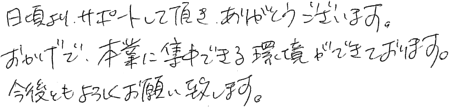 日頃より、サポートして頂き、ありがとうございます。
おかげで、本業に集中できる環境ができております。
今後ともよろしくお願い致します。